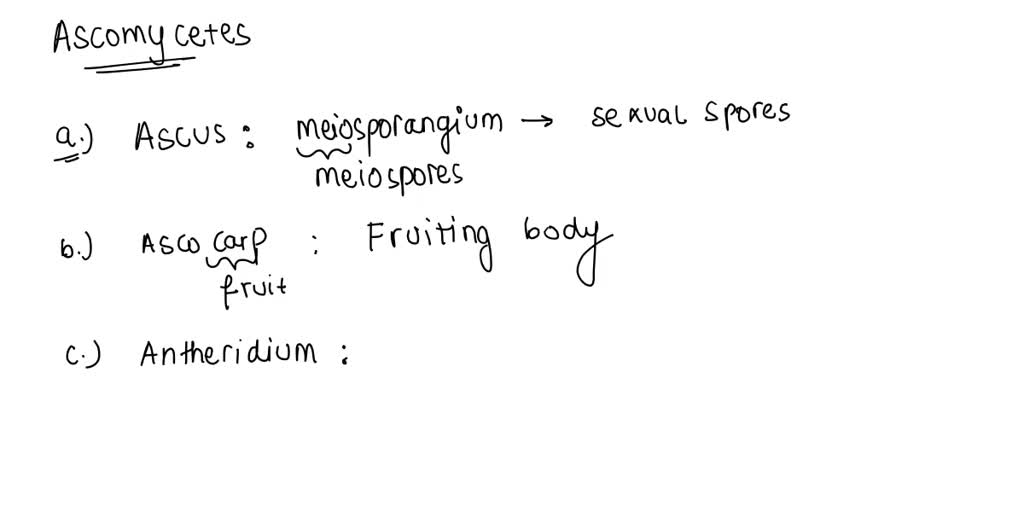 Ascomycetes
a.) Ascus : meiosporangium → sexual spores
meiospores
b.) Asco carp : Fruiting body
fruit
c.) Antheridium :